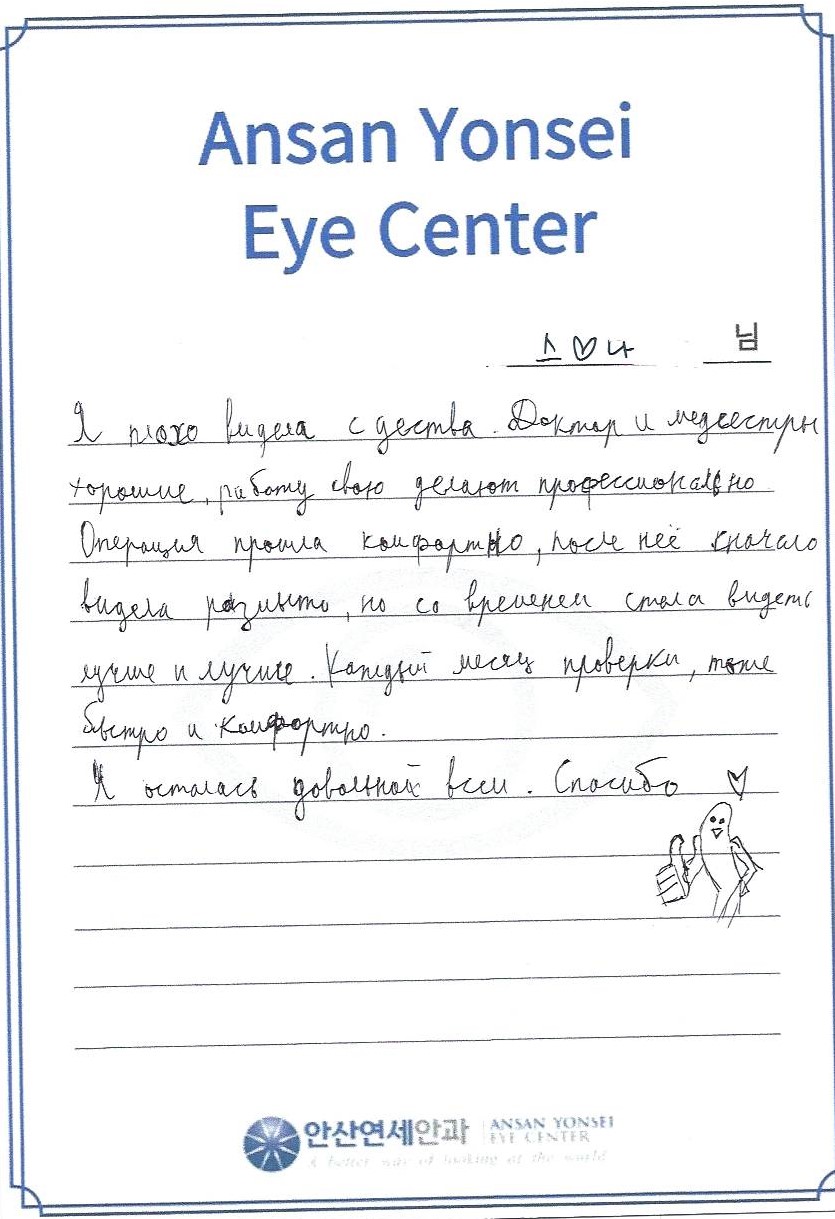 Ansan Yonsei
Eye Center
스♡나 님
Я плохо видела с дества. Доктор и медсестры
хорошие, работу свою делают профессионально
Операция прошла комфортно, после неё сначало
видела размыто, но со временем стала видеть
лучше и лучше. Каждый месяц проверки, тоже
быстро и комфортно.
Я осталась довольной всем. Спасибо
안산연세안과 ANSAN YONSEI
EYE CENTER
A better way of looking at the world